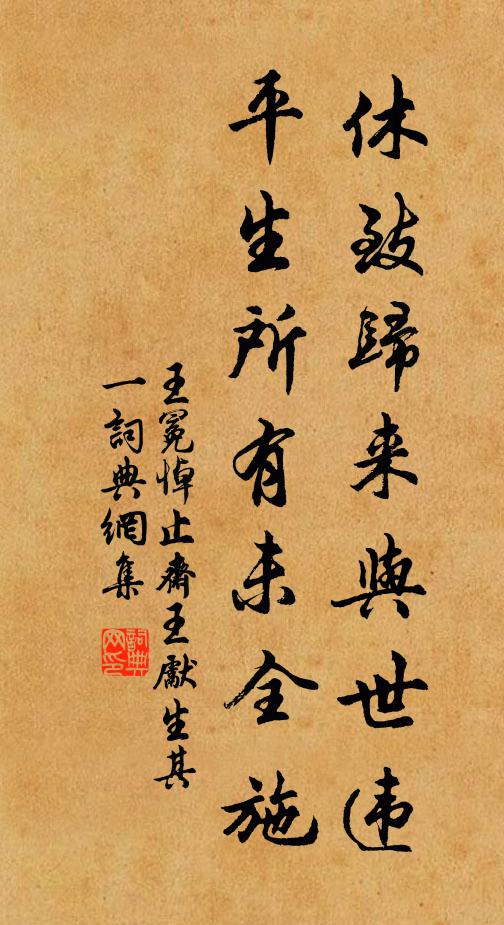 休致歸来與世違
平生所有未全施
王冕悼止齋王獻生其
一詞典網集
詞典网印